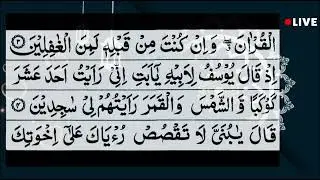 LIVE
الْقُرْاٰنَ ۖ وَاِنْ كُنْتَ مِنْ قَبْلِهٖ لَمِنَ الْغٰفِلِيْنَ ۝۳
اِذْ قَالَ يُوْسُفُ لِاَبِيْهِ يٰۤاَبَتِ اِنِّيْ رَاَيْتُ اَحَدَ عَشَرَ
كَوْكَبًا وَّ الشَّمْسَ وَالْقَمَرَ رَاَيْتُهُمْ لِيْ سٰجِدِيْنَ ۝۴
قَالَ يٰبُنَيَّ لَا تَقْصُصْ رُءْيَاكَ عَلٰۤى اِخْوَتِكَ